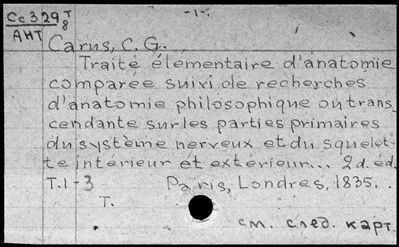 Cc329 T/8
-1-
АНТ
Carus, C. G.
Traité élementaire d'anatomie
comparée suivi de recherches
d'anatomie philosophique ou trans
cendante sur les parties primaires
du système nerveux et du squelet-
te intérieur et extérieur... 2d. éd.
T.1-3 Paris, Londres, 1835.
T.
см. след. карт.